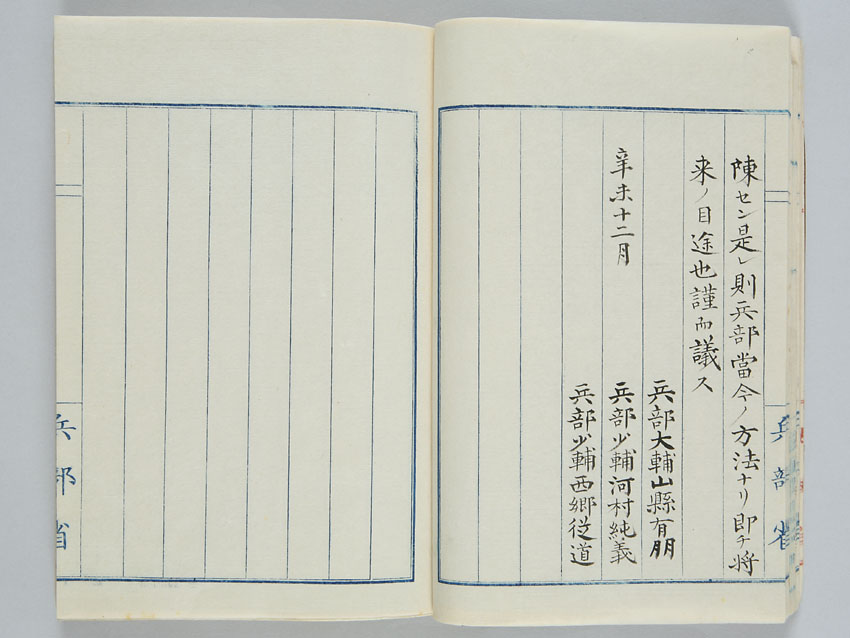 陳セン是レ則兵部當今ノ方法ナリ即チ將
来ノ目途也謹而議ス
辛未十二月
兵部大輔山縣有朋
兵部少輔河村純義
兵部少輔西郷従道
兵部省
兵部省